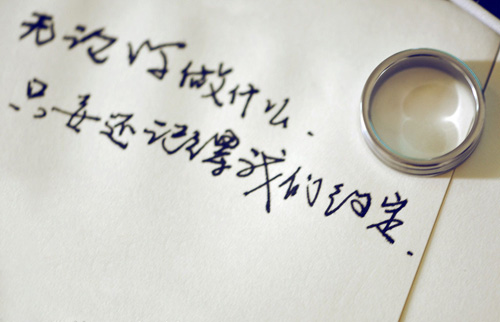 无论你做什么.
只要还记得我们的约定.